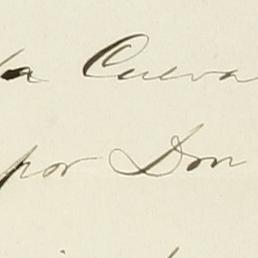 la Cueva
por Don